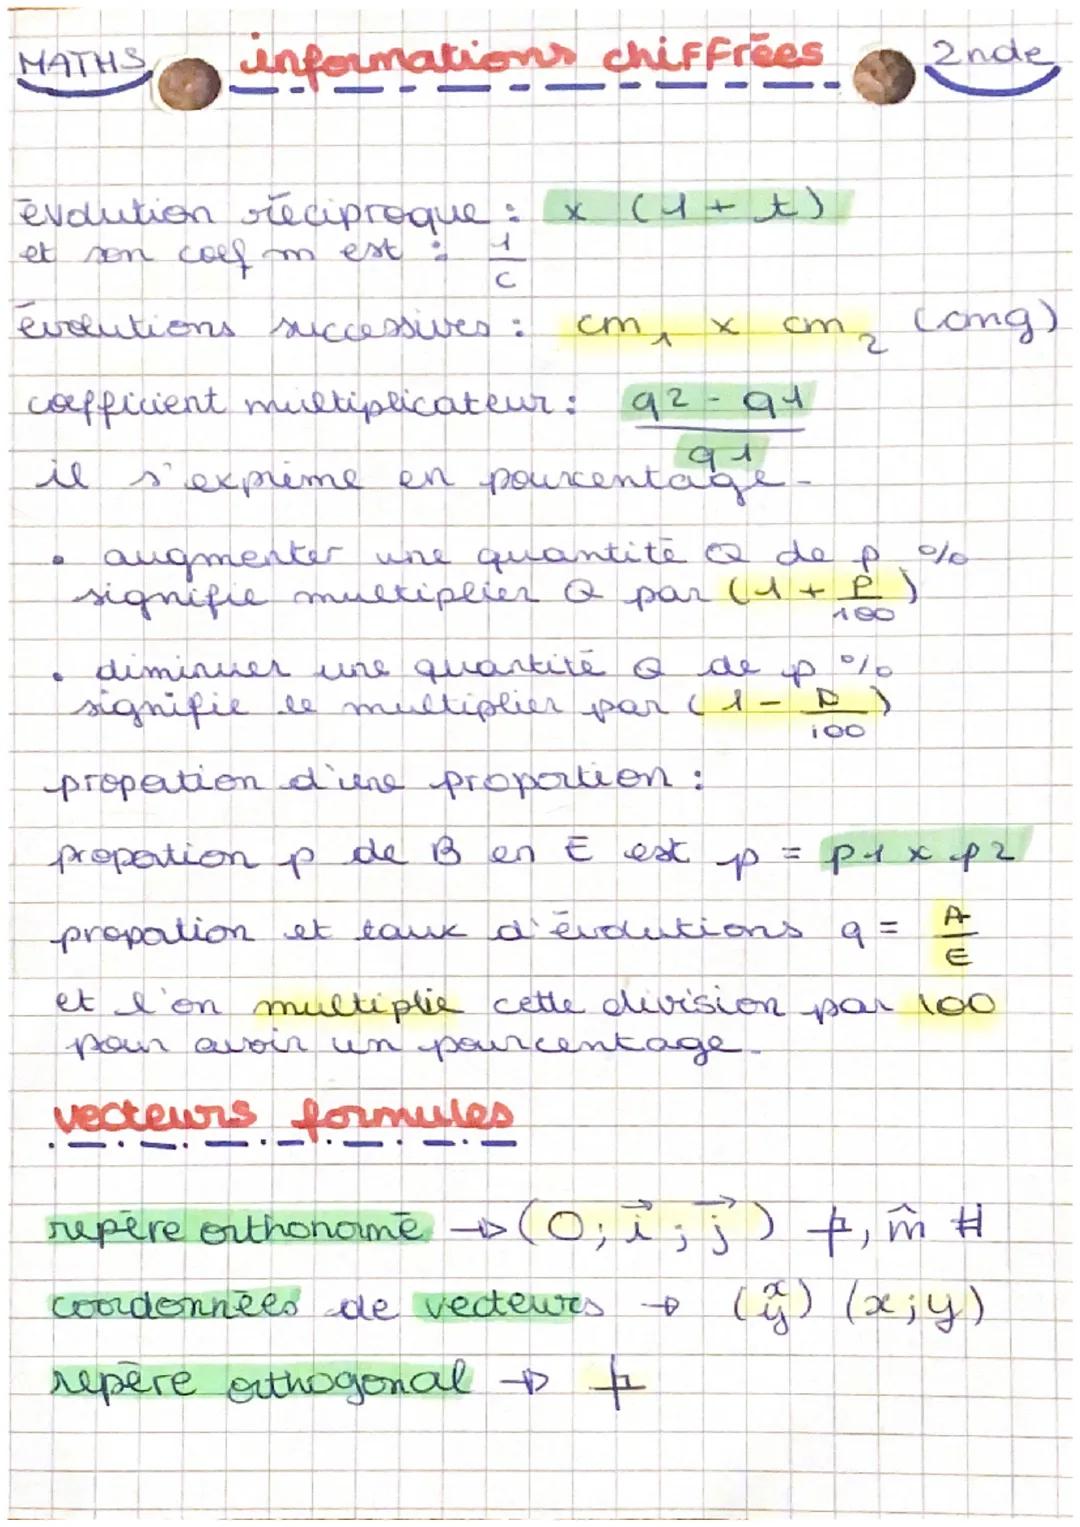 MATHS informations chiffrées 2nde
évolution réciproque : x (1 + t)
et son coef m est : 1/c
évolutions successives : cm₁ x cm₂ (cmg)
coefficient multiplicateur : q2 - q1 / q1
il s'exprime en pourcentage.
• augmenter une quantité Q de p %
signifie multiplier Q par (1 + p/100)
• diminuer une quantité Q de p %
signifie le multiplier par (1 - p/100)
propotion d'une proportion :
propotion p de B en E est p = p1 x p2
propotion et taux d'évolutions q = A/E
et l'on multiplie cette division par 100
pour avoir un pourcentage.
vecteurs formules
repère orthonormé → (O; i⃗ ; j⃗) , m̂ #
coordonnées de vecteurs → (x y) (x;y)
repère orthogonal →